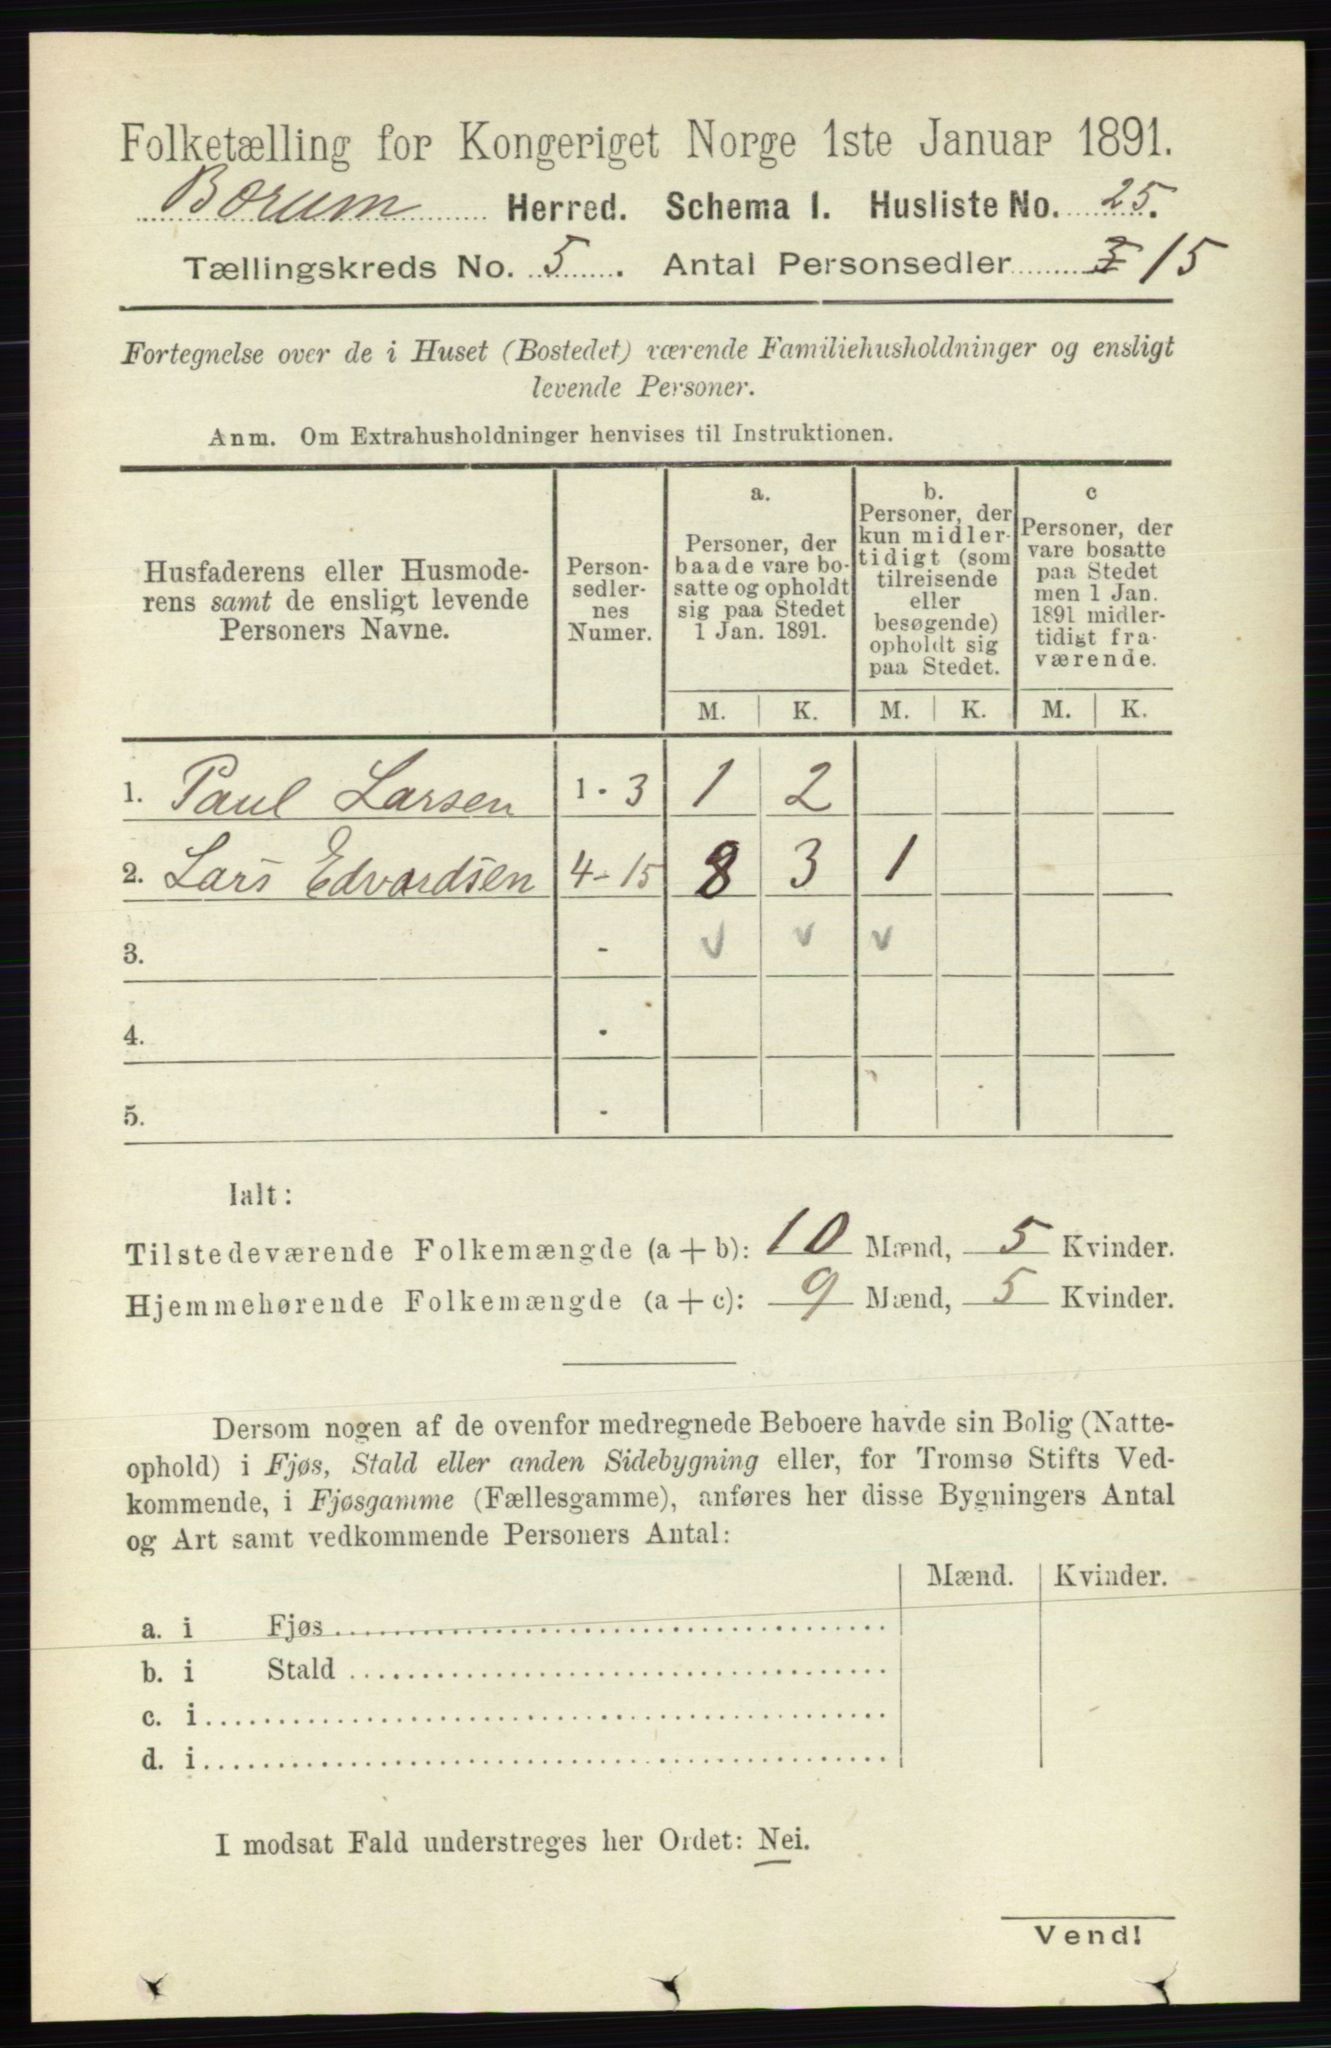 Folketælling for Kongeriget Norge 1ste Januar 1891.
Bærum Herred. Schema I. Husliste No. 25.
Tællingskreds No. 5. Antal Personsedler 15
Fortegnelse over de i Huset (Bostedet) værende Familiehusholdninger og ensligt
levende Personer.
Anm. Om Extrahusholdninger henvises til Instruktionen.
Husfaderens eller Husmode-
rens samt de ensligt levende
Personers Navne.
Person-
sedler-
nes
Numer.
a.
Personer, der
baade vare bo-
satte og opholdt
sig paa Stedet
1 Jan. 1891.
b.
Personer, der
kun midler-
tidigt (som
tilreisende
eller
besøgende)
opholdt sig
paa Stedet.
c
Personer, der
vare bosatte
paa Stedet
men 1 Jan.
1891 midler-
tidigt fra-
værende.
M. K. M. K. M. K.
1. Paul Larsen 1 - 3 1 2
2. Lars Edvardsen 4 - 15 8 3 1
3. - v v v
4. -
5. -
Ialt:
Tilstedeværende Folkemængde (a + b): 10 Mænd, 5 Kvinder.
Hjemmehørende Folkemængde (a + c): 9 Mænd, 5 Kvinder.
Dersom nogen af de ovenfor medregnede Beboere havde sin Bolig (Natte-
ophold) i Fjøs, Stald eller anden Sidebygning eller, for Tromsø Stifts Ved-
kommende, i Fjøsgamme (Fællesgamme), anføres her disse Bygningers Antal
og Art samt vedkommende Personers Antal:
Mænd. Kvinder.
a. i Fjøs
b. i Stald
c. i
d. i
I modsat Fald understreges her Ordet: Nei.
Vend!